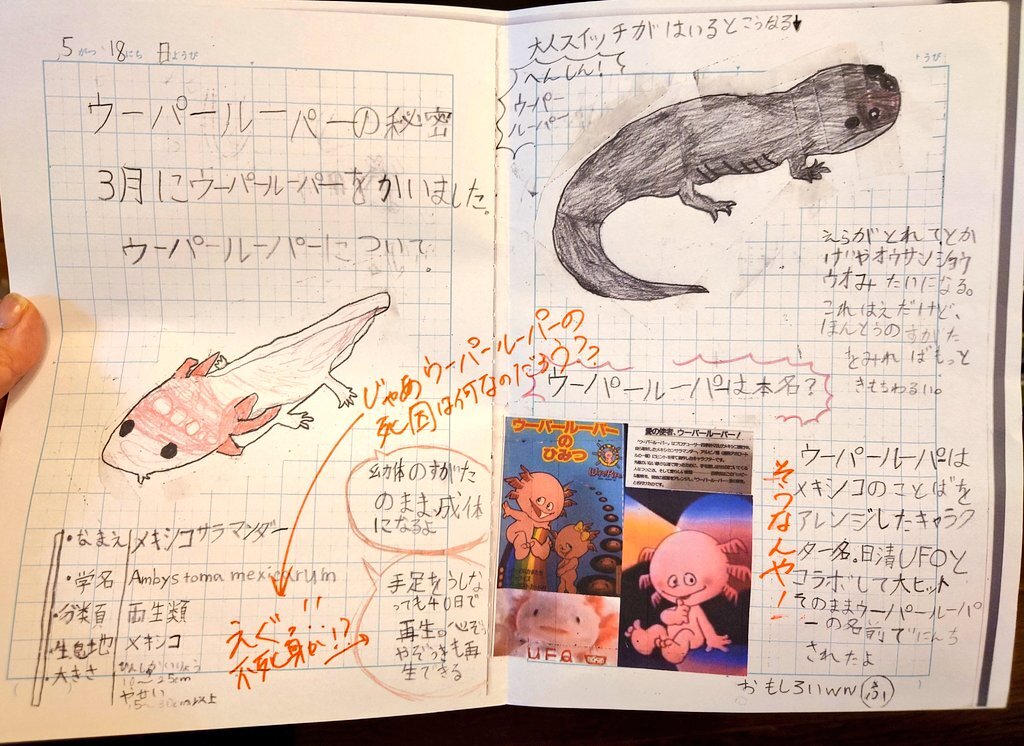 5がつ 18にち 日ようび
ウーパールーパーの秘密
3月にウーパールーパーをかいました。
ウーパールーパーについて
・なまえ メキシコサラマンダー
・学名 Ambystoma mexicarum
・分類 両生類
・生息地 メキシコ
・大きさ
10〜25cm
やせい
幼体のすがた
のまま成体
になるよ
手足をうしな
っても40日で
再生。心ぞう
やぞうきも再
生できる
じゃあ ウーパールーパーの
死因は何なのだろう??
えぐ!!
不死身かい!?
大人スイッチがはいるとこうなる
へんしん!
ウーパー
ルーパー
ようび
えらがとれてとか
げやオウサンショウ
ウオみたいになる。
これはえだけど、
ほんとうのすがた
をみればもっと
きもちわるい。
ウーパールーパーは本名?
ウーパールーパーの
ひみつ
愛の使者、ウーパールーパー!
UFO
そうなんや!
ウーパールーパは
メキシコのことばを
アレンジしたキャラク
ター名。日清UFOと
コラボして大ヒット
そのままウーパールーパ
ーの名前でにんち
されたよ
おもしろいwn